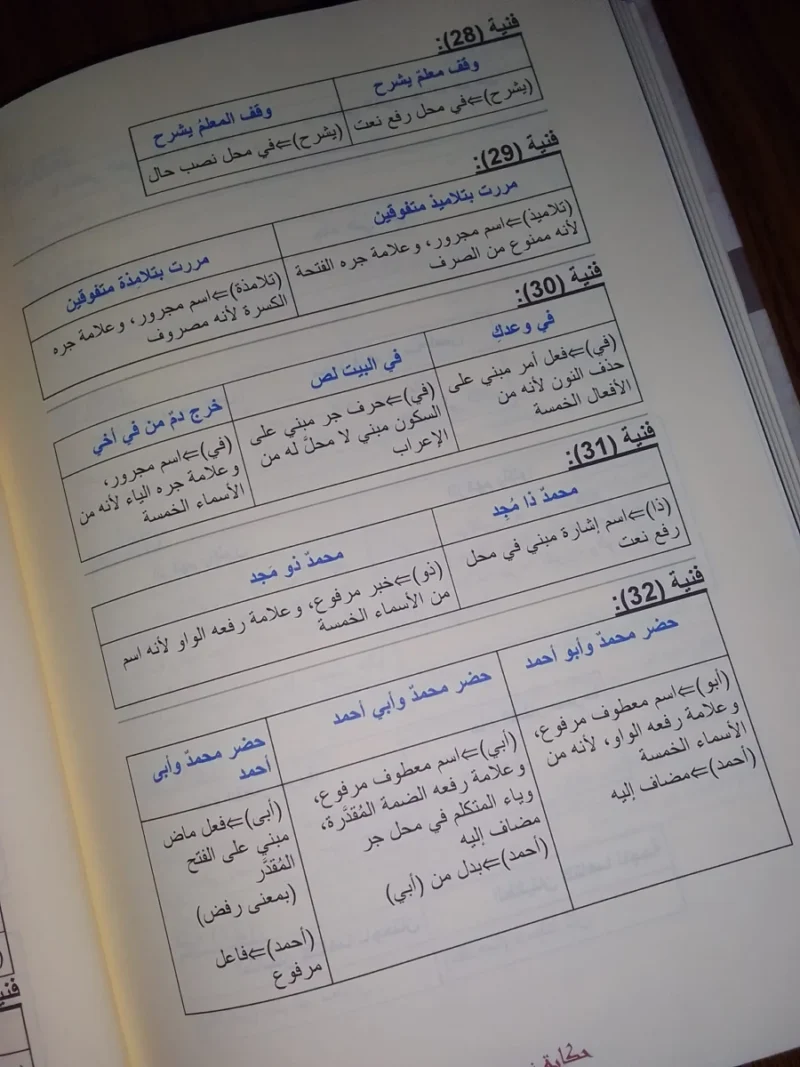 فنية (28):
وقف معلمٌ يشرح
وقف المعلمُ يشرح
(يشرح)⇐في محل رفع نعت
(يشرح)⇐في محل نصب حال
فنية (29):
مررت بتلاميذ متفوقين
مررت بتلامِذة متفوقين
(تلاميذ)⇐اسم مجرور، وعلامة جره الفتحة
لأنه ممنوع من الصرف
(تلامذة)⇐اسم مجرور، وعلامة جره
الكسرة لأنه مصروف
فنية (30):
في وعدكِ
في البيت لص
خرج دمٌ من في أخي
(في)⇐فعل أمر مبني على
حذف النون لأنه من
الأفعال الخمسة
(في)⇐حرف جر مبني على
السكون مبني لا محلَّ له من
الإعراب
(في)⇐اسم مجرور،
وعلامة جره الياء لأنه من
الأسماء الخمسة
فنية (31):
محمدٌ ذا مُجِد
محمدٌ ذو مَجد
(ذا)⇐اسم إشارة مبني في محل
رفع نعت
(ذو)⇐خبر مرفوع، وعلامة رفعه الواو لأنه اسم
من الأسماء الخمسة
فنية (32):
حضر محمدٌ وأبو أحمد
حضر محمدٌ وأبي أحمد
حضر محمدٌ وأبى
أحمد
(أبو)⇐اسم معطوف مرفوع،
وعلامة رفعه الواو، لأنه من
الأسماء الخمسة
(أحمد)⇐مضاف إليه
(أبي)⇐اسم معطوف مرفوع،
وعلامة رفعه الضمة المُقدَّرة،
وياء المتكلم في محل جر
مضاف إليه
(أحمد)⇐بدل من (أبي)
(أبى)⇐فعل ماض
مبني على الفتح
المُقدَّر
(بمعنى رفض)
(أحمد)⇐فاعل
مرفوع